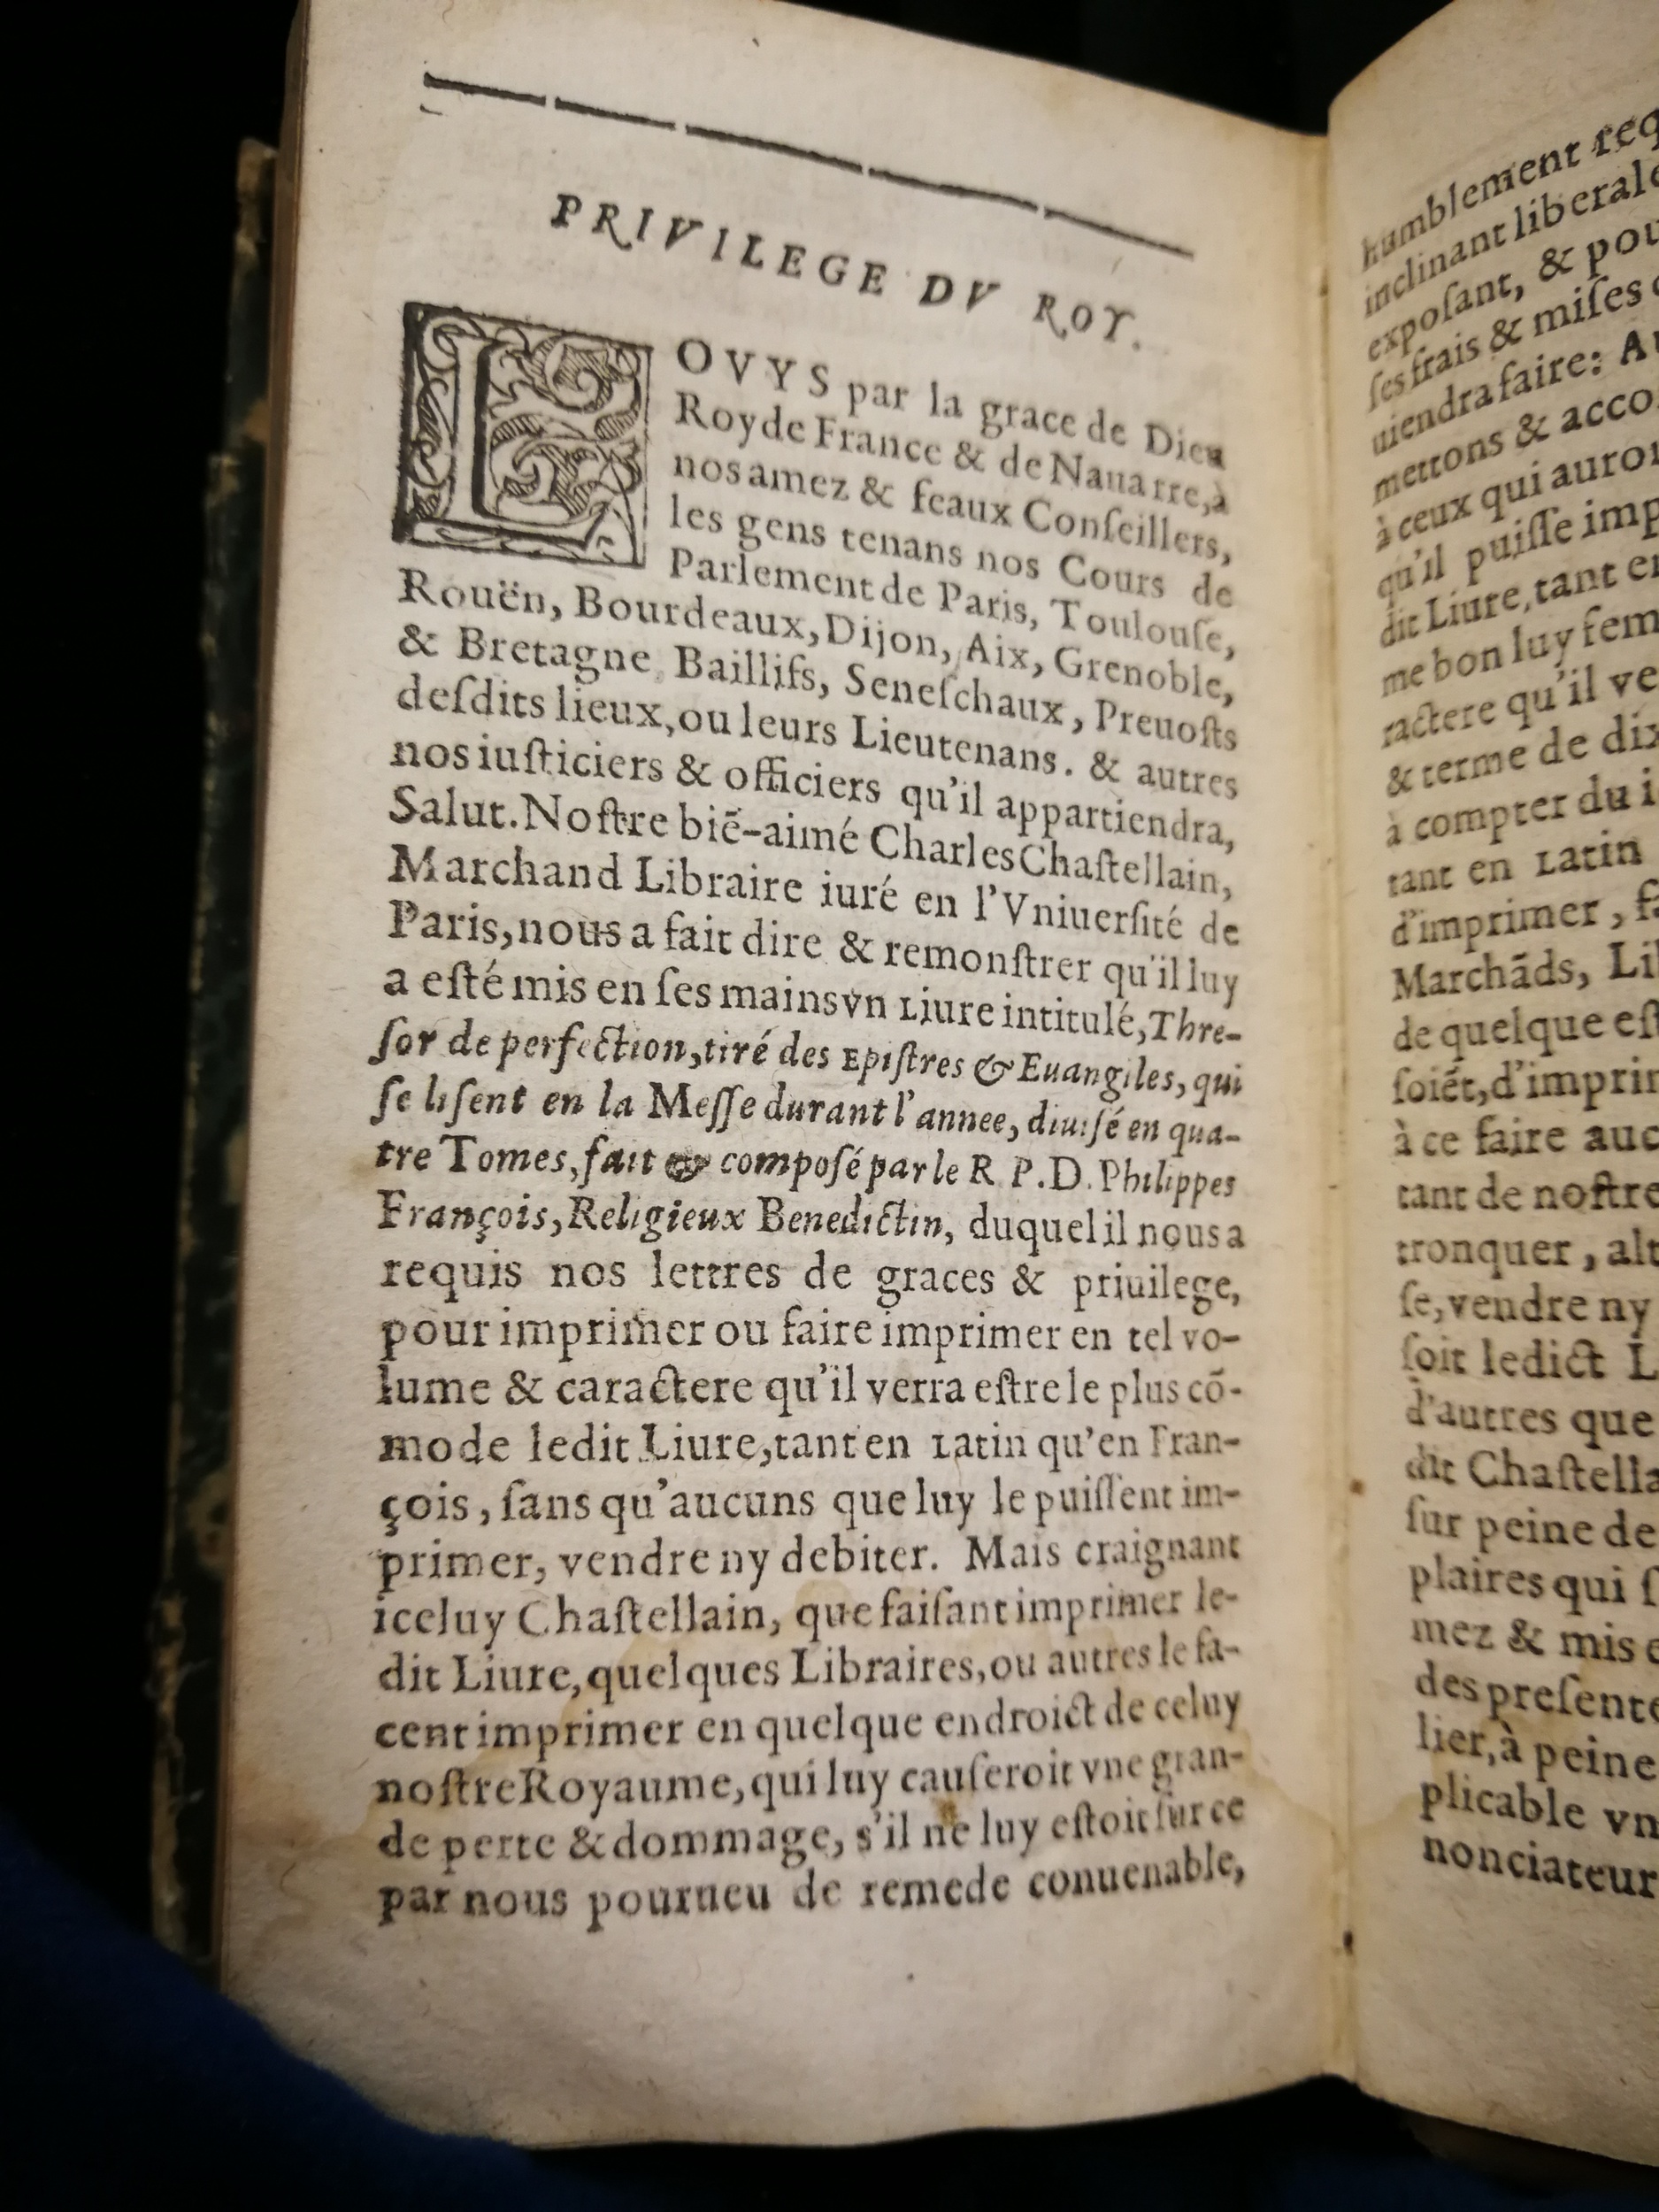 PRIVILEGE DV ROY.
LOVYS par la grace de Dieu
Roy de France & de Nauarre, à
nos amez & feaux Conſeillers,
les gens tenans nos Cours de
Parlement de Paris, Toulouſe,
Rouën, Bourdeaux, Dijon, Aix, Grenoble,
& Bretagne, Baillifs, Seneſchaux, Preuoſts
deſdits lieux, ou leurs Lieutenans. & autres
nos iuſticiers & officiers qu'il appartiendra,
Salut. Noſtre biē-aimé Charles Chaſtellain,
Marchand Libraire iuré en l'Vniuerſité de
Paris, nous a fait dire & remonſtrer qu'il luy
a eſté mis en ſes mains vn Liure intitulé, Thre-
ſor de perfection, tiré des Epiſtres & Euangiles, qui
ſe liſent en la Meſſe durant l'annee, diuiſé en qua-
tre Tomes, fait & compoſé par le R. P. D. Philippes
François, Religieux Benedictin, duquel il nous a
requis nos lettres de graces & priuilege,
pour imprimer ou faire imprimer en tel vo-
lume & caractere qu'il verra eſtre le plus cō-
mode ledit Liure, tant en Latin qu'en Fran-
çois, ſans qu'aucuns que luy le puiſſent im-
primer, vendre ny debiter. Mais craignant
iceluy Chaſtellain, que faiſant imprimer le-
dit Liure, quelques Libraires, ou autres le fa-
cent imprimer en quelque endroict de celuy
noſtre Royaume, qui luy cauſeroit vne gran-
de perte & dommage, s'il ne luy eſtoit ſur ce
par nous pourueu de remede conuenable,
humblement req
inclinant liberale
expoſant, & pou
ſes frais & miſes
uiendra faire: A
mettons & acco
à ceux qui auro
qu'il puiſſe imp
dit Liure, tant e
me bon luy ſem
ractere qu'il ve
& terme de dix
à compter du i
tant en Latin
d'imprimer, fa
Marchāds, Li
de quelque eſt
ſoiēt, d'imprir
à ce faire auc
tant de noſtre
tronquer, alt
ſe, vendre ny
ſoit ledict L
d'autres que
dit Chaſtella
ſur peine de
plaires qui ſ
mez & mis e
des preſente
lier, à peine
plicable vn
nonciateur